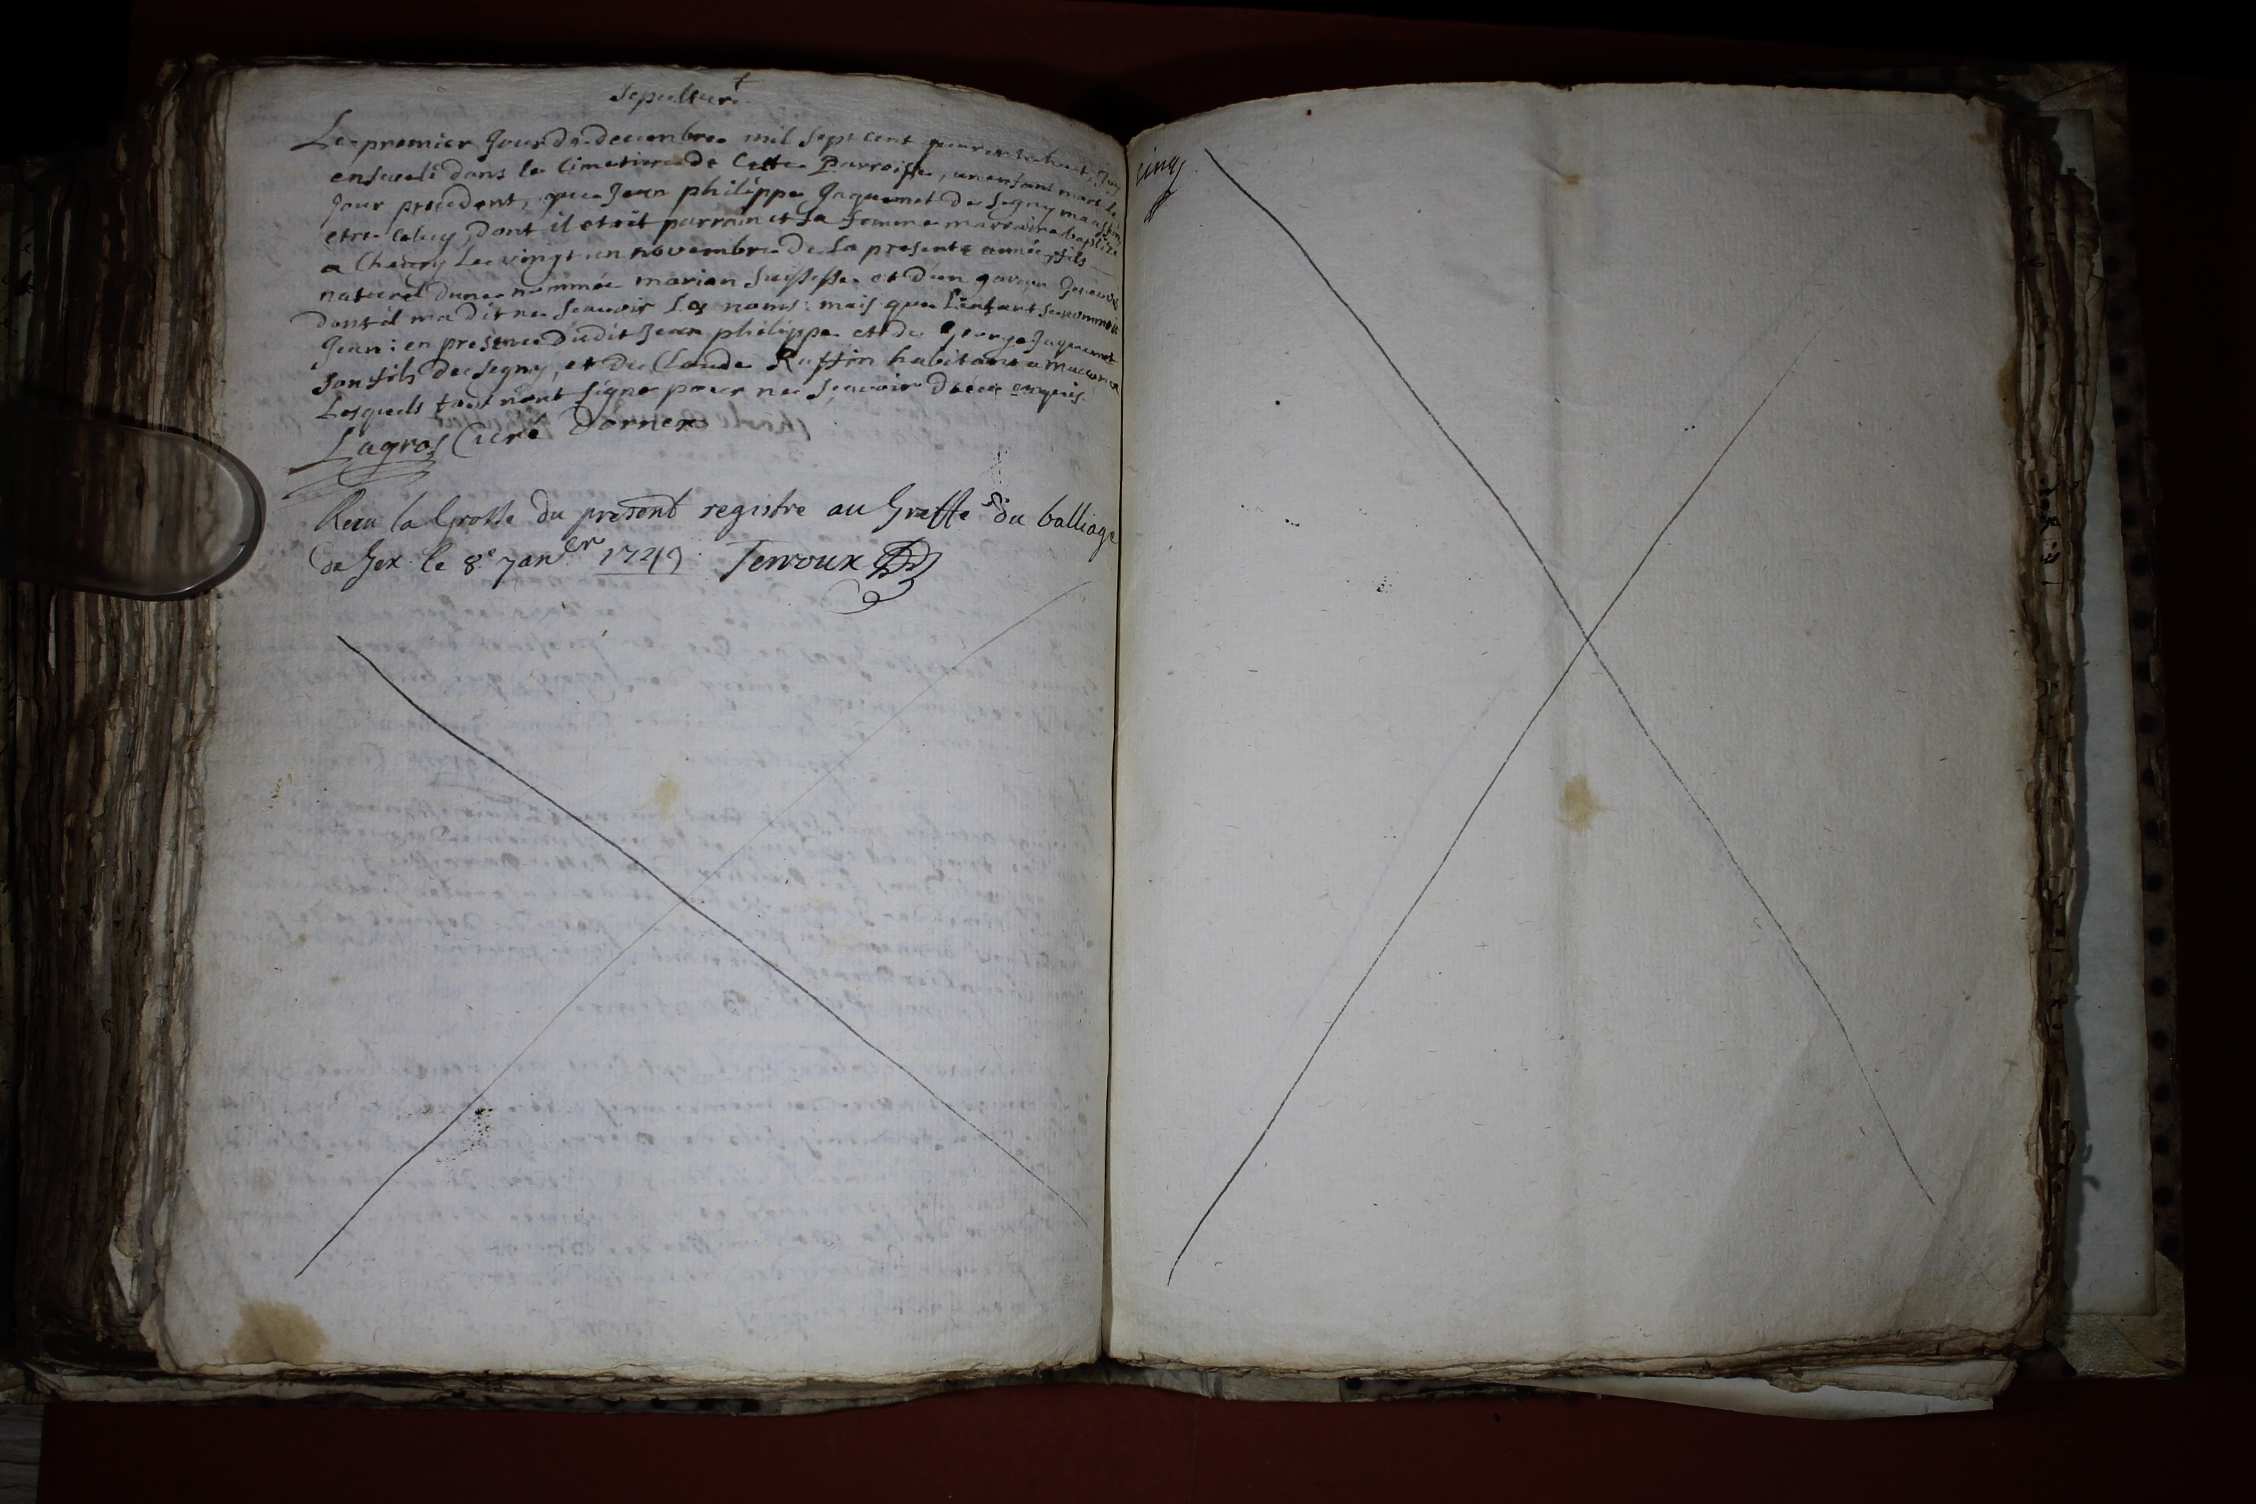 Sepulture
Le premier Jour de decembre mil sept cent quarante huit, Jay
enseveli dans le Cimetiere de Cette Parroisse, un enfant mort le
Jour precedent, que Jean philippe Jaquemet de Segny
etre celuy, dont il etoit parrain et sa femme marraine baptizé
a Chevry Le vingt un novembre de La presente année, fils
naturel dune nommée marian Suissesse et d'un garçon
dont il ma dit ne scavoir Les noms: mais que l'enfant se nommoit
Jean: en presence dudit Jean philippe et de george Jaquemet
son fils de Segny, et de Claude Ruffin habitant a
Lesquels tous nont signe pour ne scavoir de ce enquis
Lagros Curé Dornex
Receu la Grosse du present registre au Greffe du balliage
de Gex le 8e Janer 1749 Terroux
cinq